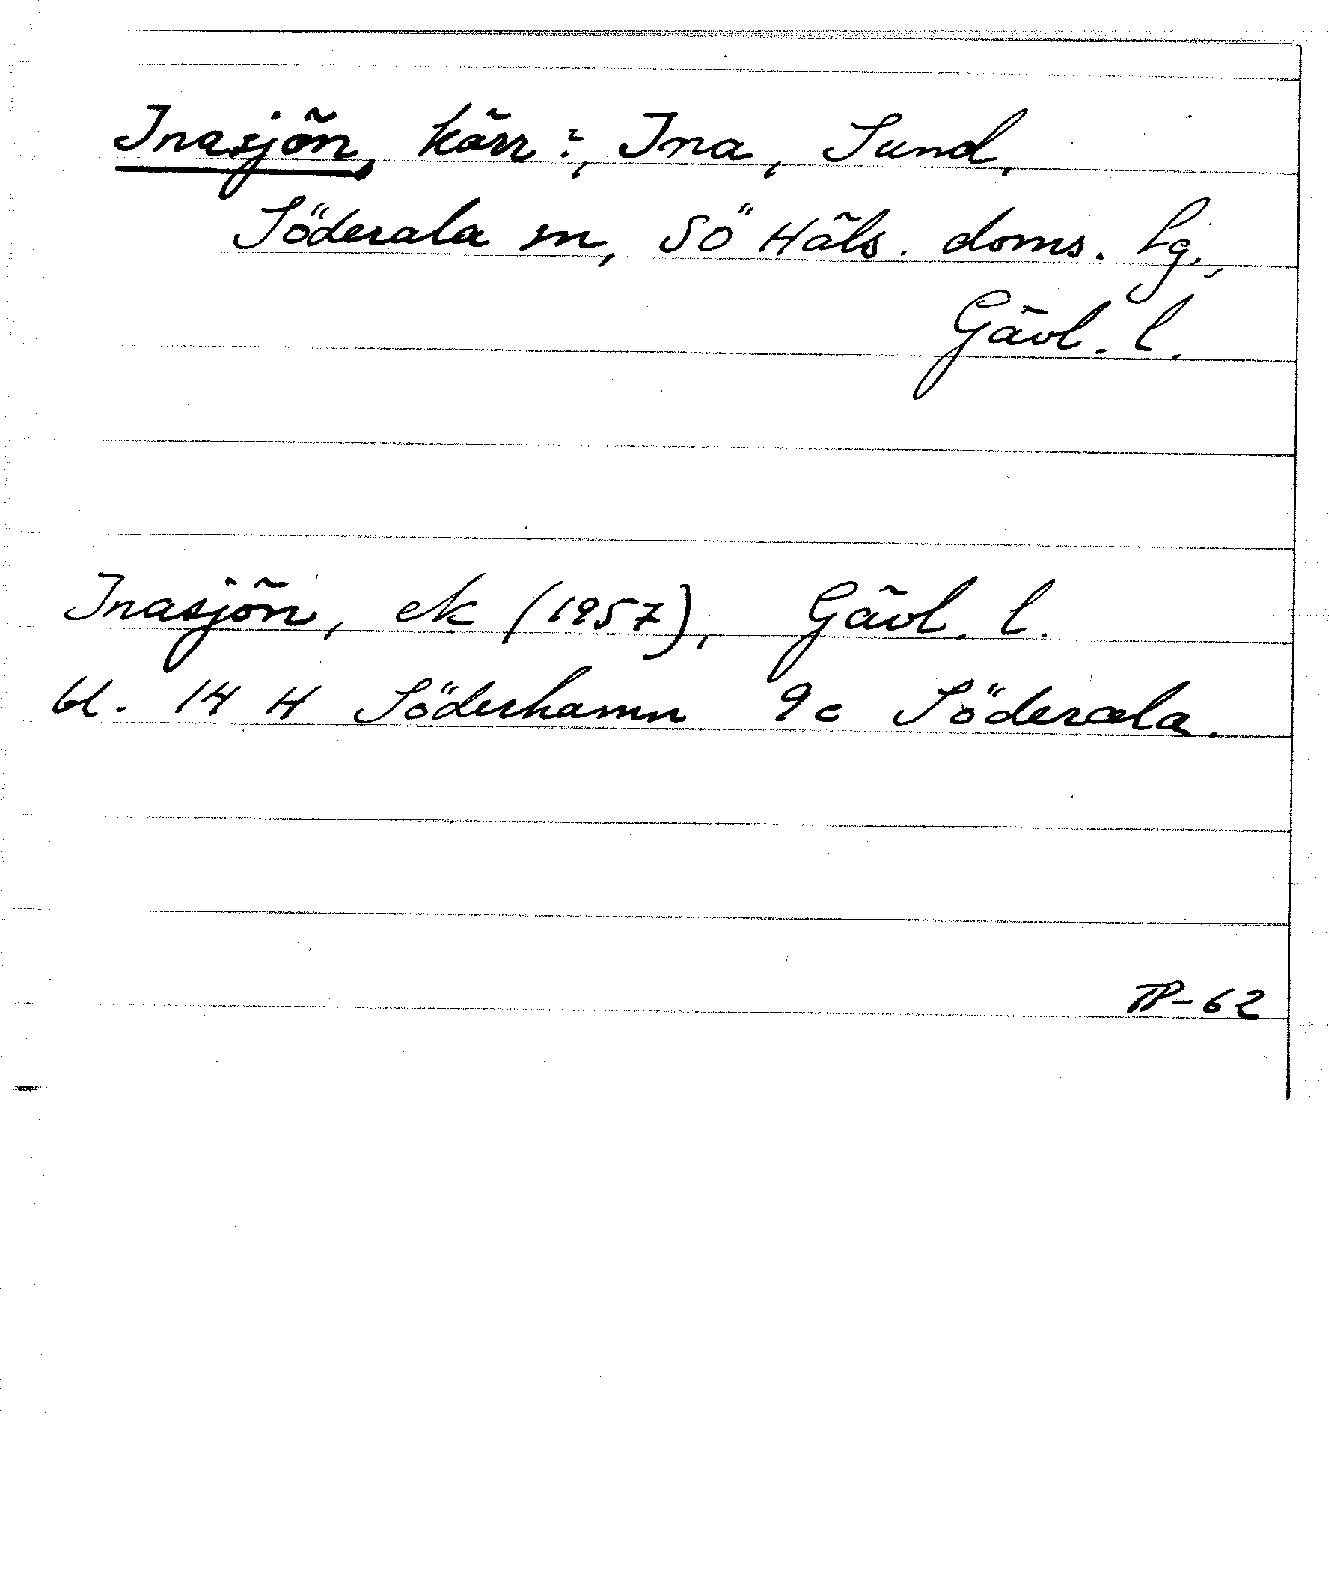 Inasjön, kärr?, Ina, Sund,
Söderala sn, SÖ Häls. doms. lg.,
Gävl. l.
Inasjön, ek (1957), Gävl. l.
bl. 14 H Söderhamn 9 c Söderala.
TP-62